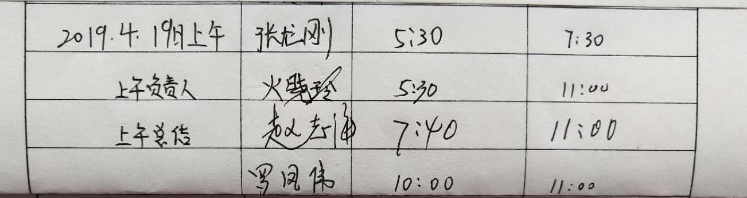 2019.4.19日上午 张龙刚 5:30 7:30
上午负责人 火 5:30 11:00
上午总结 7:40 11:00
罗凤伟 10:00 11:00